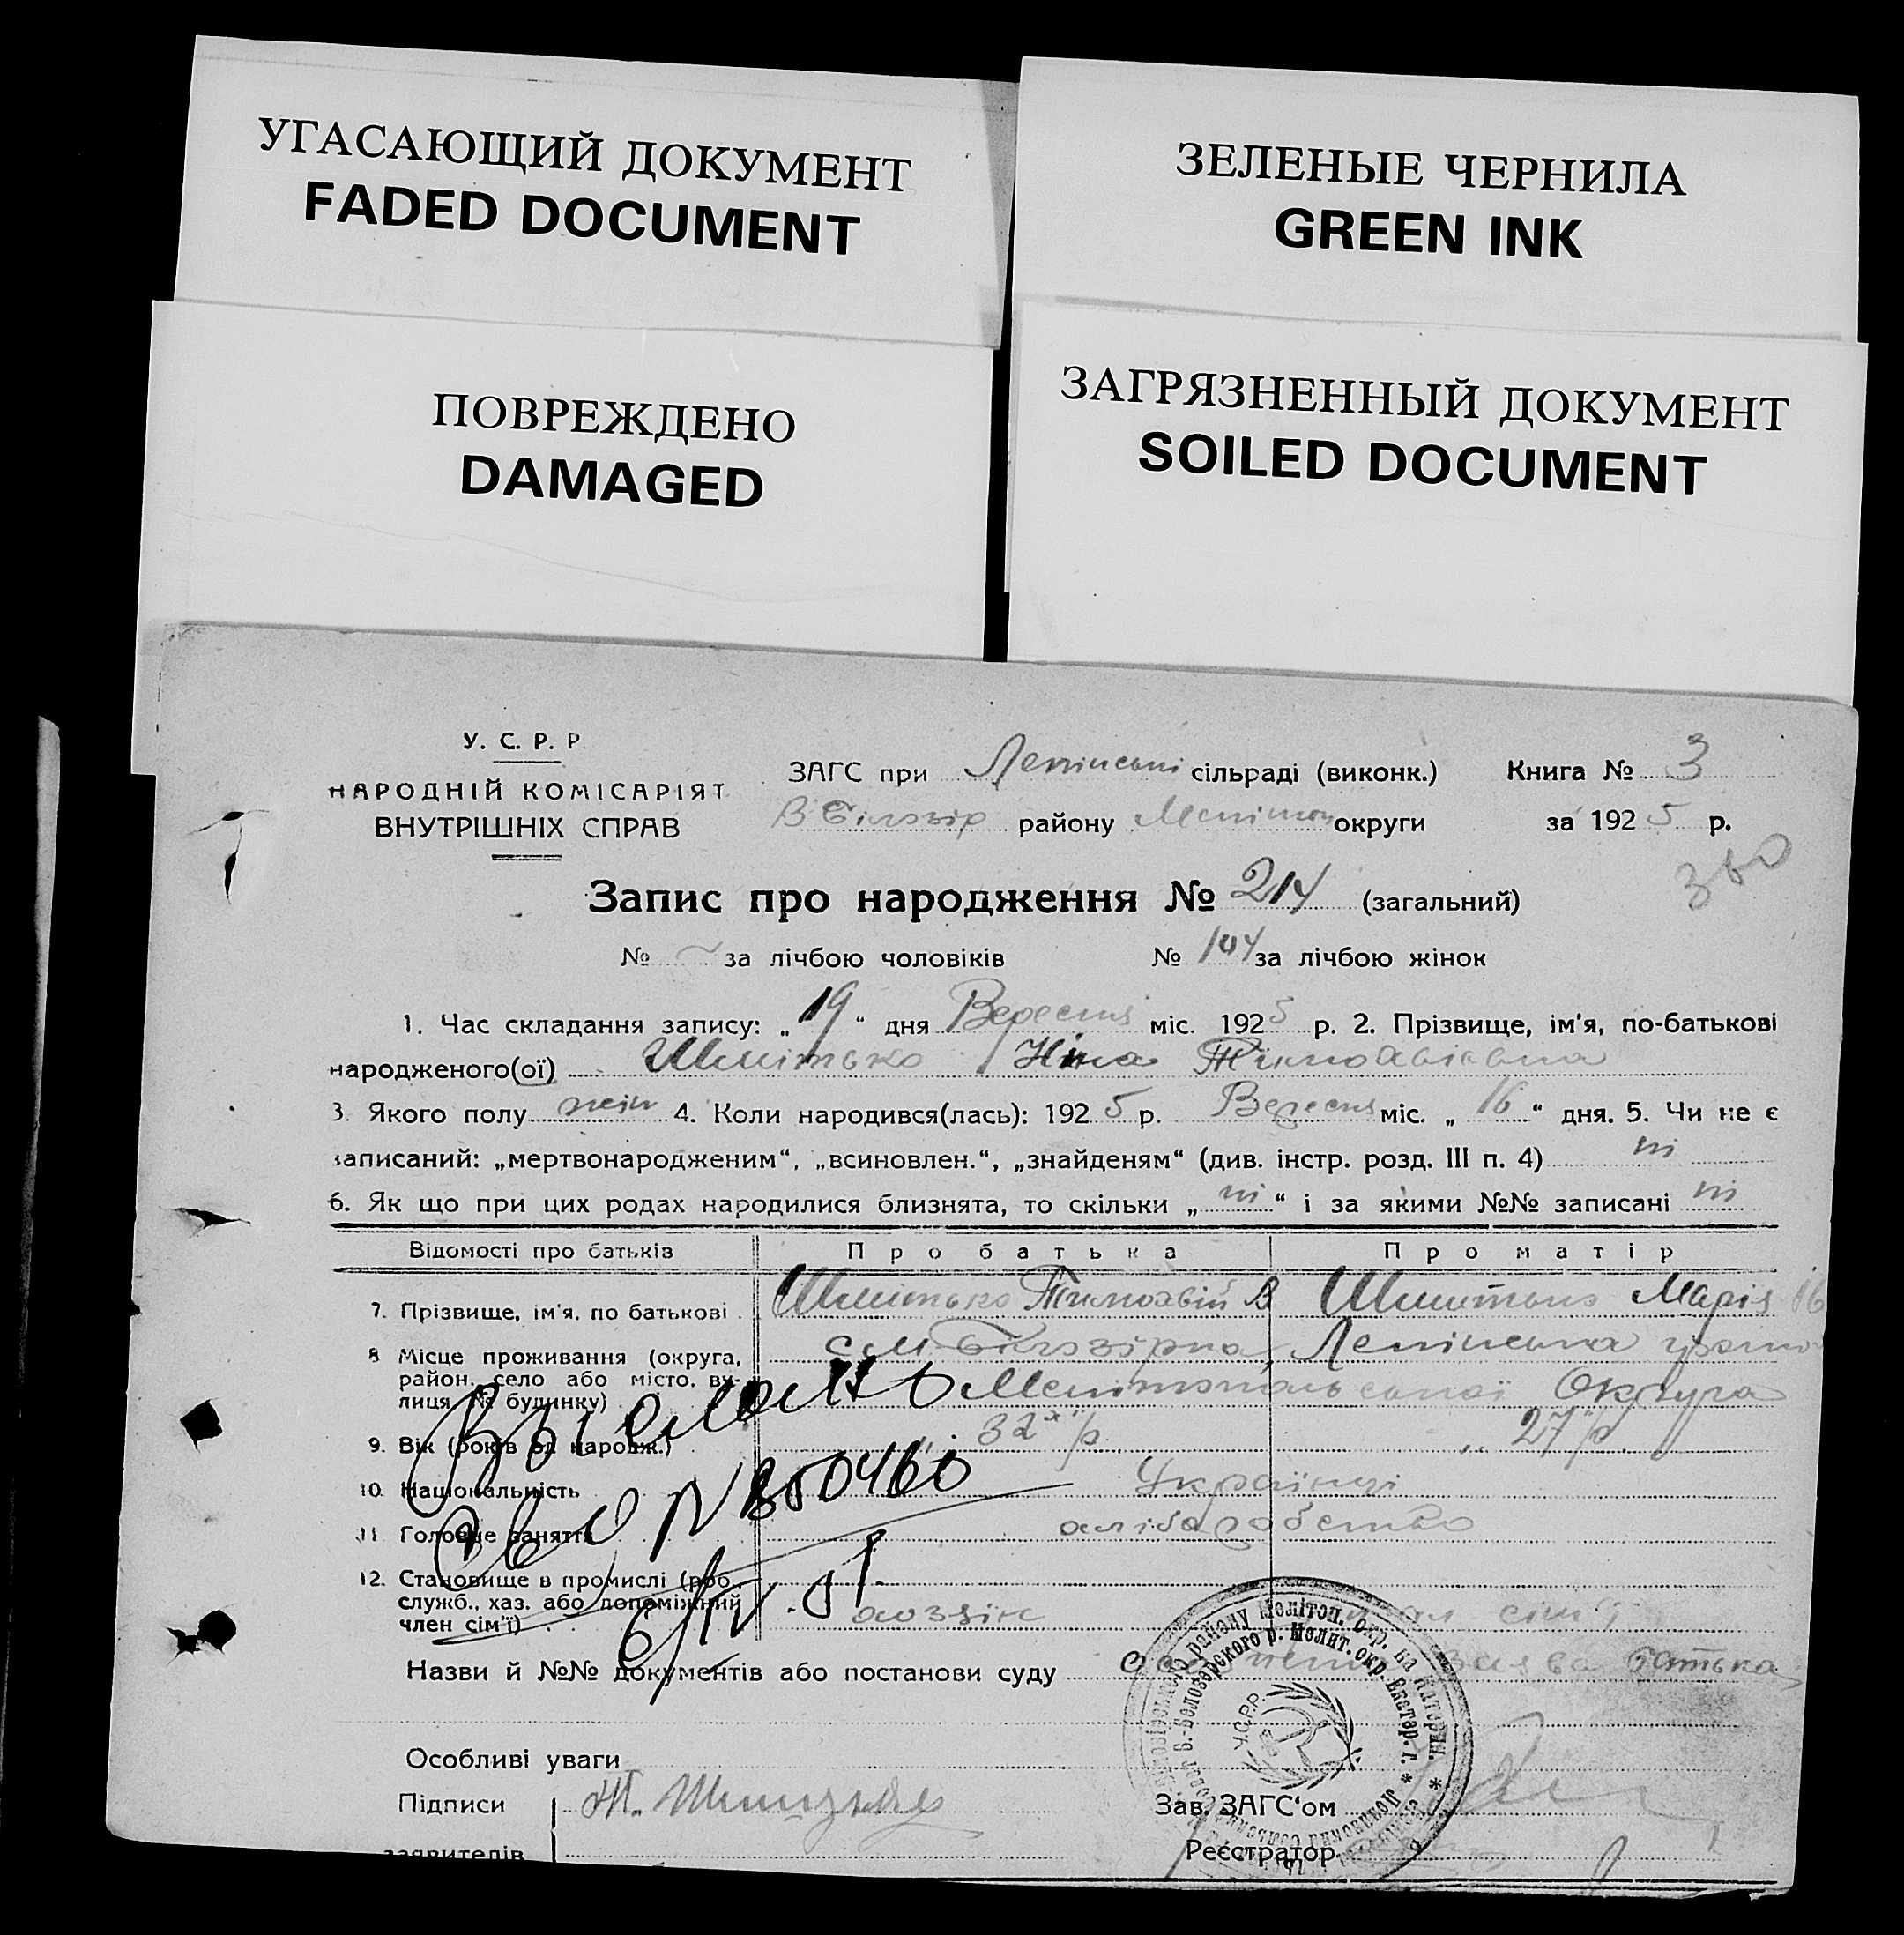 УГАСАЮЩИЙ ДОКУМЕНТ
FADED DOCUMENT
ЗЕЛЕНЫЕ ЧЕРНИЛА
GREEN INK
ПОВРЕЖДЕНО
DAMAGED
ЗАГРЯЗНЕННЫЙ ДОКУМЕНТ
SOILED DOCUMENT
У. С. Р. Р.
НАРОДНІЙ КОМІСАРІЯТ
ВНУТРІШНІХ СПРАВ
ЗАГС при Ленінські сільраді (виконк.) Книга № 3
В Білозір району Меліто округи за 1925 р.
Запис про народження № 214 (загальний)
№ за лічбою чоловіків № 104 за лічбою жінок
1. Час складання запису: „19“ дня Вересня міс. 1925 р. 2. Прізвище, ім'я, по-батькові
народженого(ої) Шмітько Ніна
3. Якого полу жін 4. Коли народився(лась): 1925 р. Вересня міс. „16“ дня. 5. Чи не є
записаний: „мертвонародженим“, „всиновлен.“, „знайденям“ (див. інстр. розд. III п. 4) ні
6. Як що при цих родах народилися близнята, то скільки „ні“ і за якими №№ записані ні
Відомості про батьків Про батька Про матір
7. Прізвище, ім'я, по батькові Шмитько Тимохвій В Шмитько Марія
8 Місце проживання (округа, район, село або місто, вулиця № будинку) Білозірка, Ленінська
Мелітопольської Округа
9. Вік (років од народж.) 32 р. 27 р.
10. Національність Українці
11 Головне заняття
12. Становище в промислі (роб.,
служб., хаз. або допоміжний
член сім'ї) хозяїн сім'ї
Назви й №№ документів або постанови суду заява батька
Особливі уваги
Підписи
заявителів
Зав. ЗАГС‘ом
Реєстратор
У.С.Р.Р.